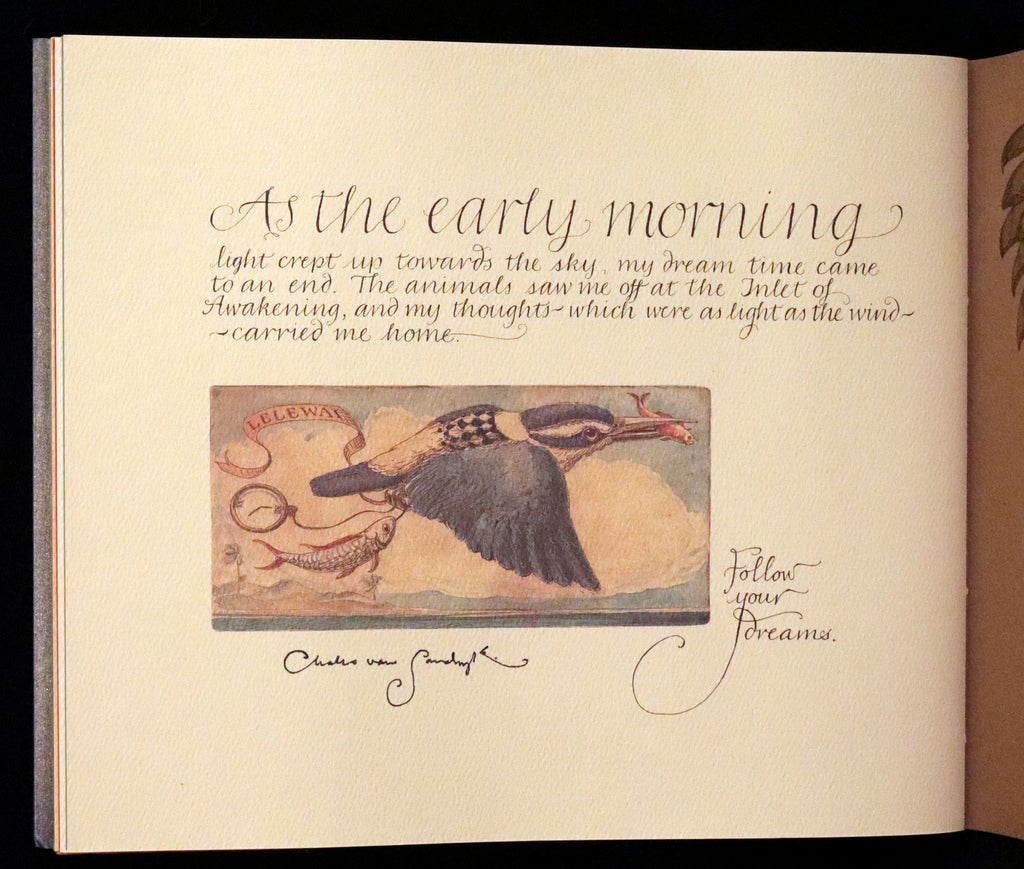 As the early morning
light crept up towards the sky, my dream time came
to an end. The animals saw me off at the Inlet of
Awakening, and my thoughts~which were as light as the wind~
~carried me home.
LELEWAI
Follow
your
dreams.